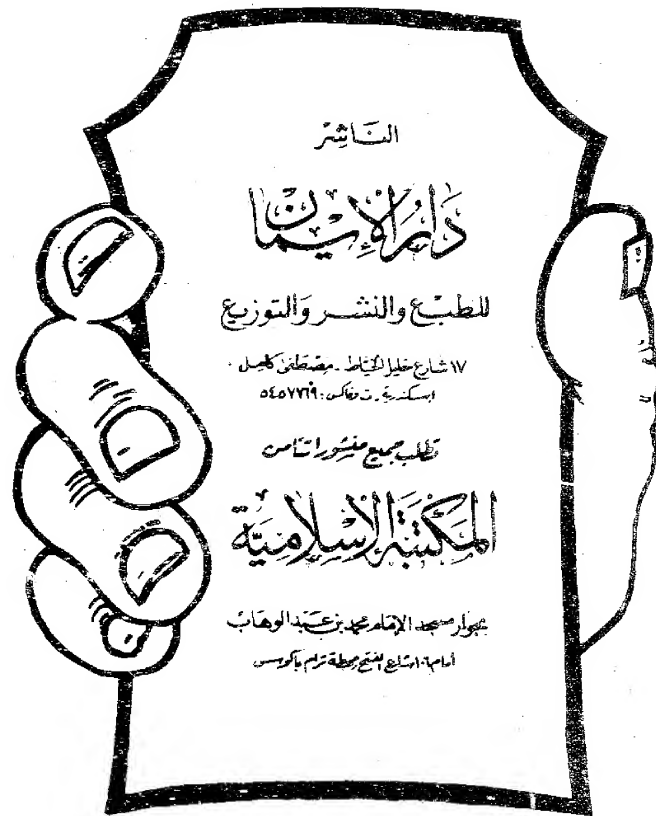 الناشر
دار الإيمان
للطبع والنشر والتوزيع
١٧ شارع خليل الخياط - مصطفى كامل -
اسكندرية. ت وفاكس: ٥٤٥٧٧٦٩
تطلب جميع منشوراتنا من
المكتبة الإسلامية
بجوار مسجد الإمام محمد بن عبد الوهاب
شارع الفتح محطة ترام باكوس